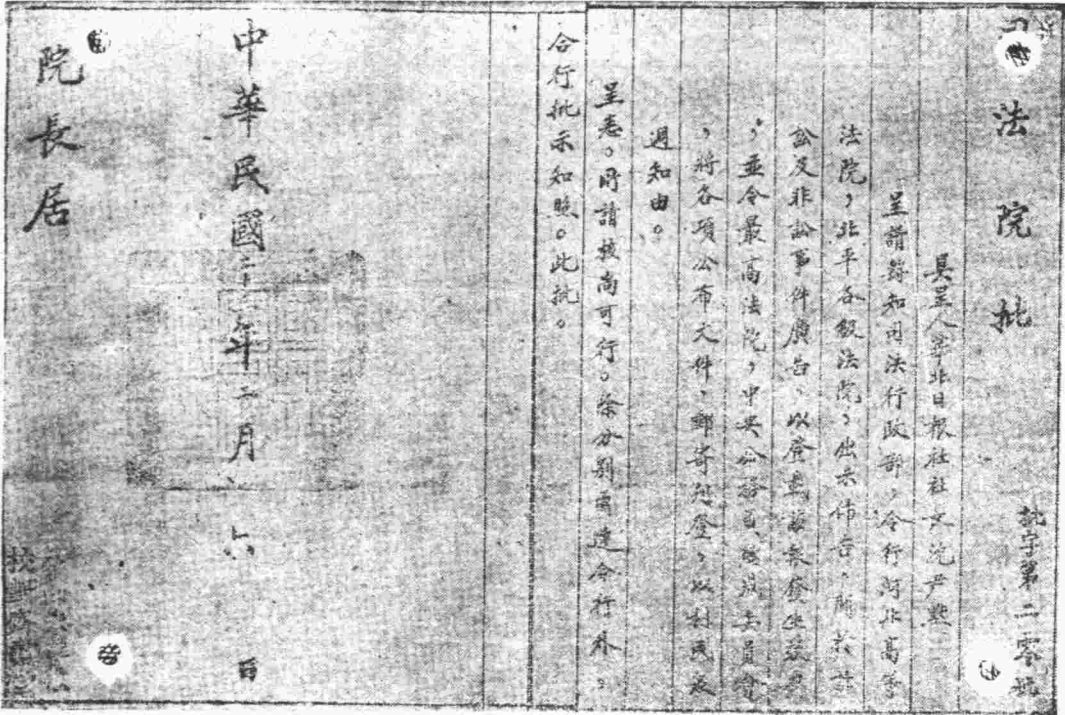 法院批
批字第二零號
具呈人華北日報社社文沈尹默
呈請 知司法行政部,令行河北高等
法院,北平各級法院,出示佈告,
訟及非訟事件廣告,以登載 報發生效力
,並令最高法院,中央公務員 委員會
,將各項公布文件,郵寄刊登,以利民
週知由。
呈悉。所請核尚可行。除分別函達令行外。
合行批示知照。此批。
中華民國二十二年二月六日
院長居